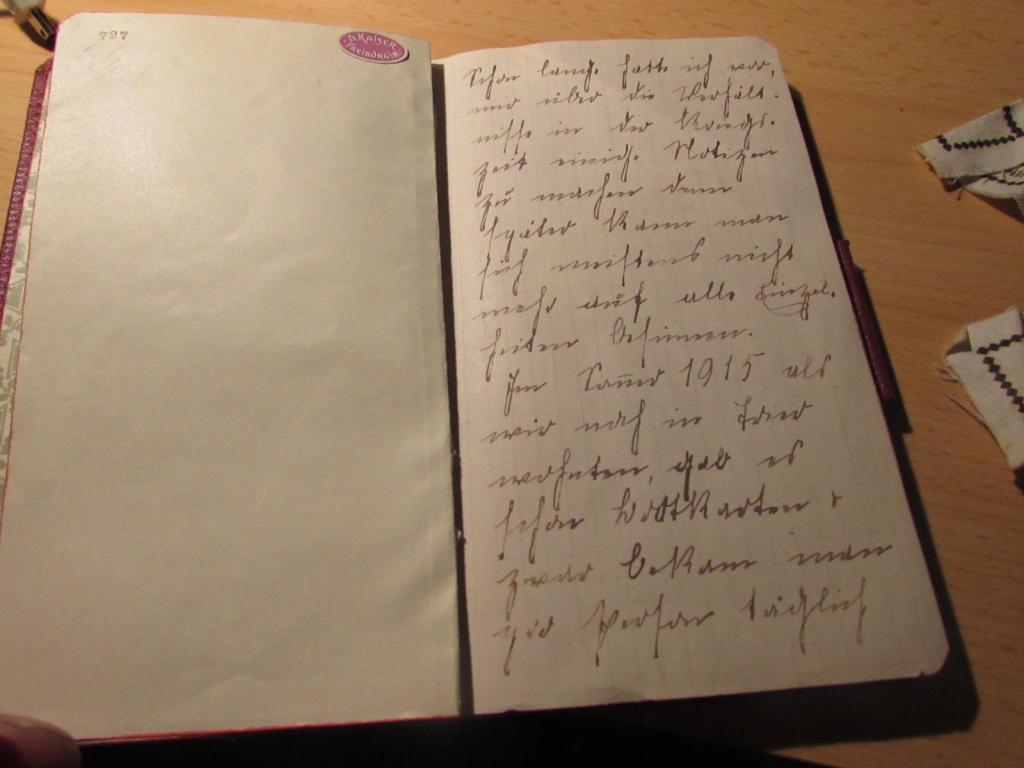 727
D. KAISER
FREIBURG i/B.
Schon lange hatte ich vor,
mir über die Verhält-
nisse in der Kriegs-
zeit einige Notizen
zu machen denn
später kann man
sich meistens nicht
mehr auf alle Einzel-
heiten besinnen.
Im Som̅er 1915 als
wir noch in Trier
wohnten, gab es
schon Brotkarten &
zwar bekam man
pro Person täglich